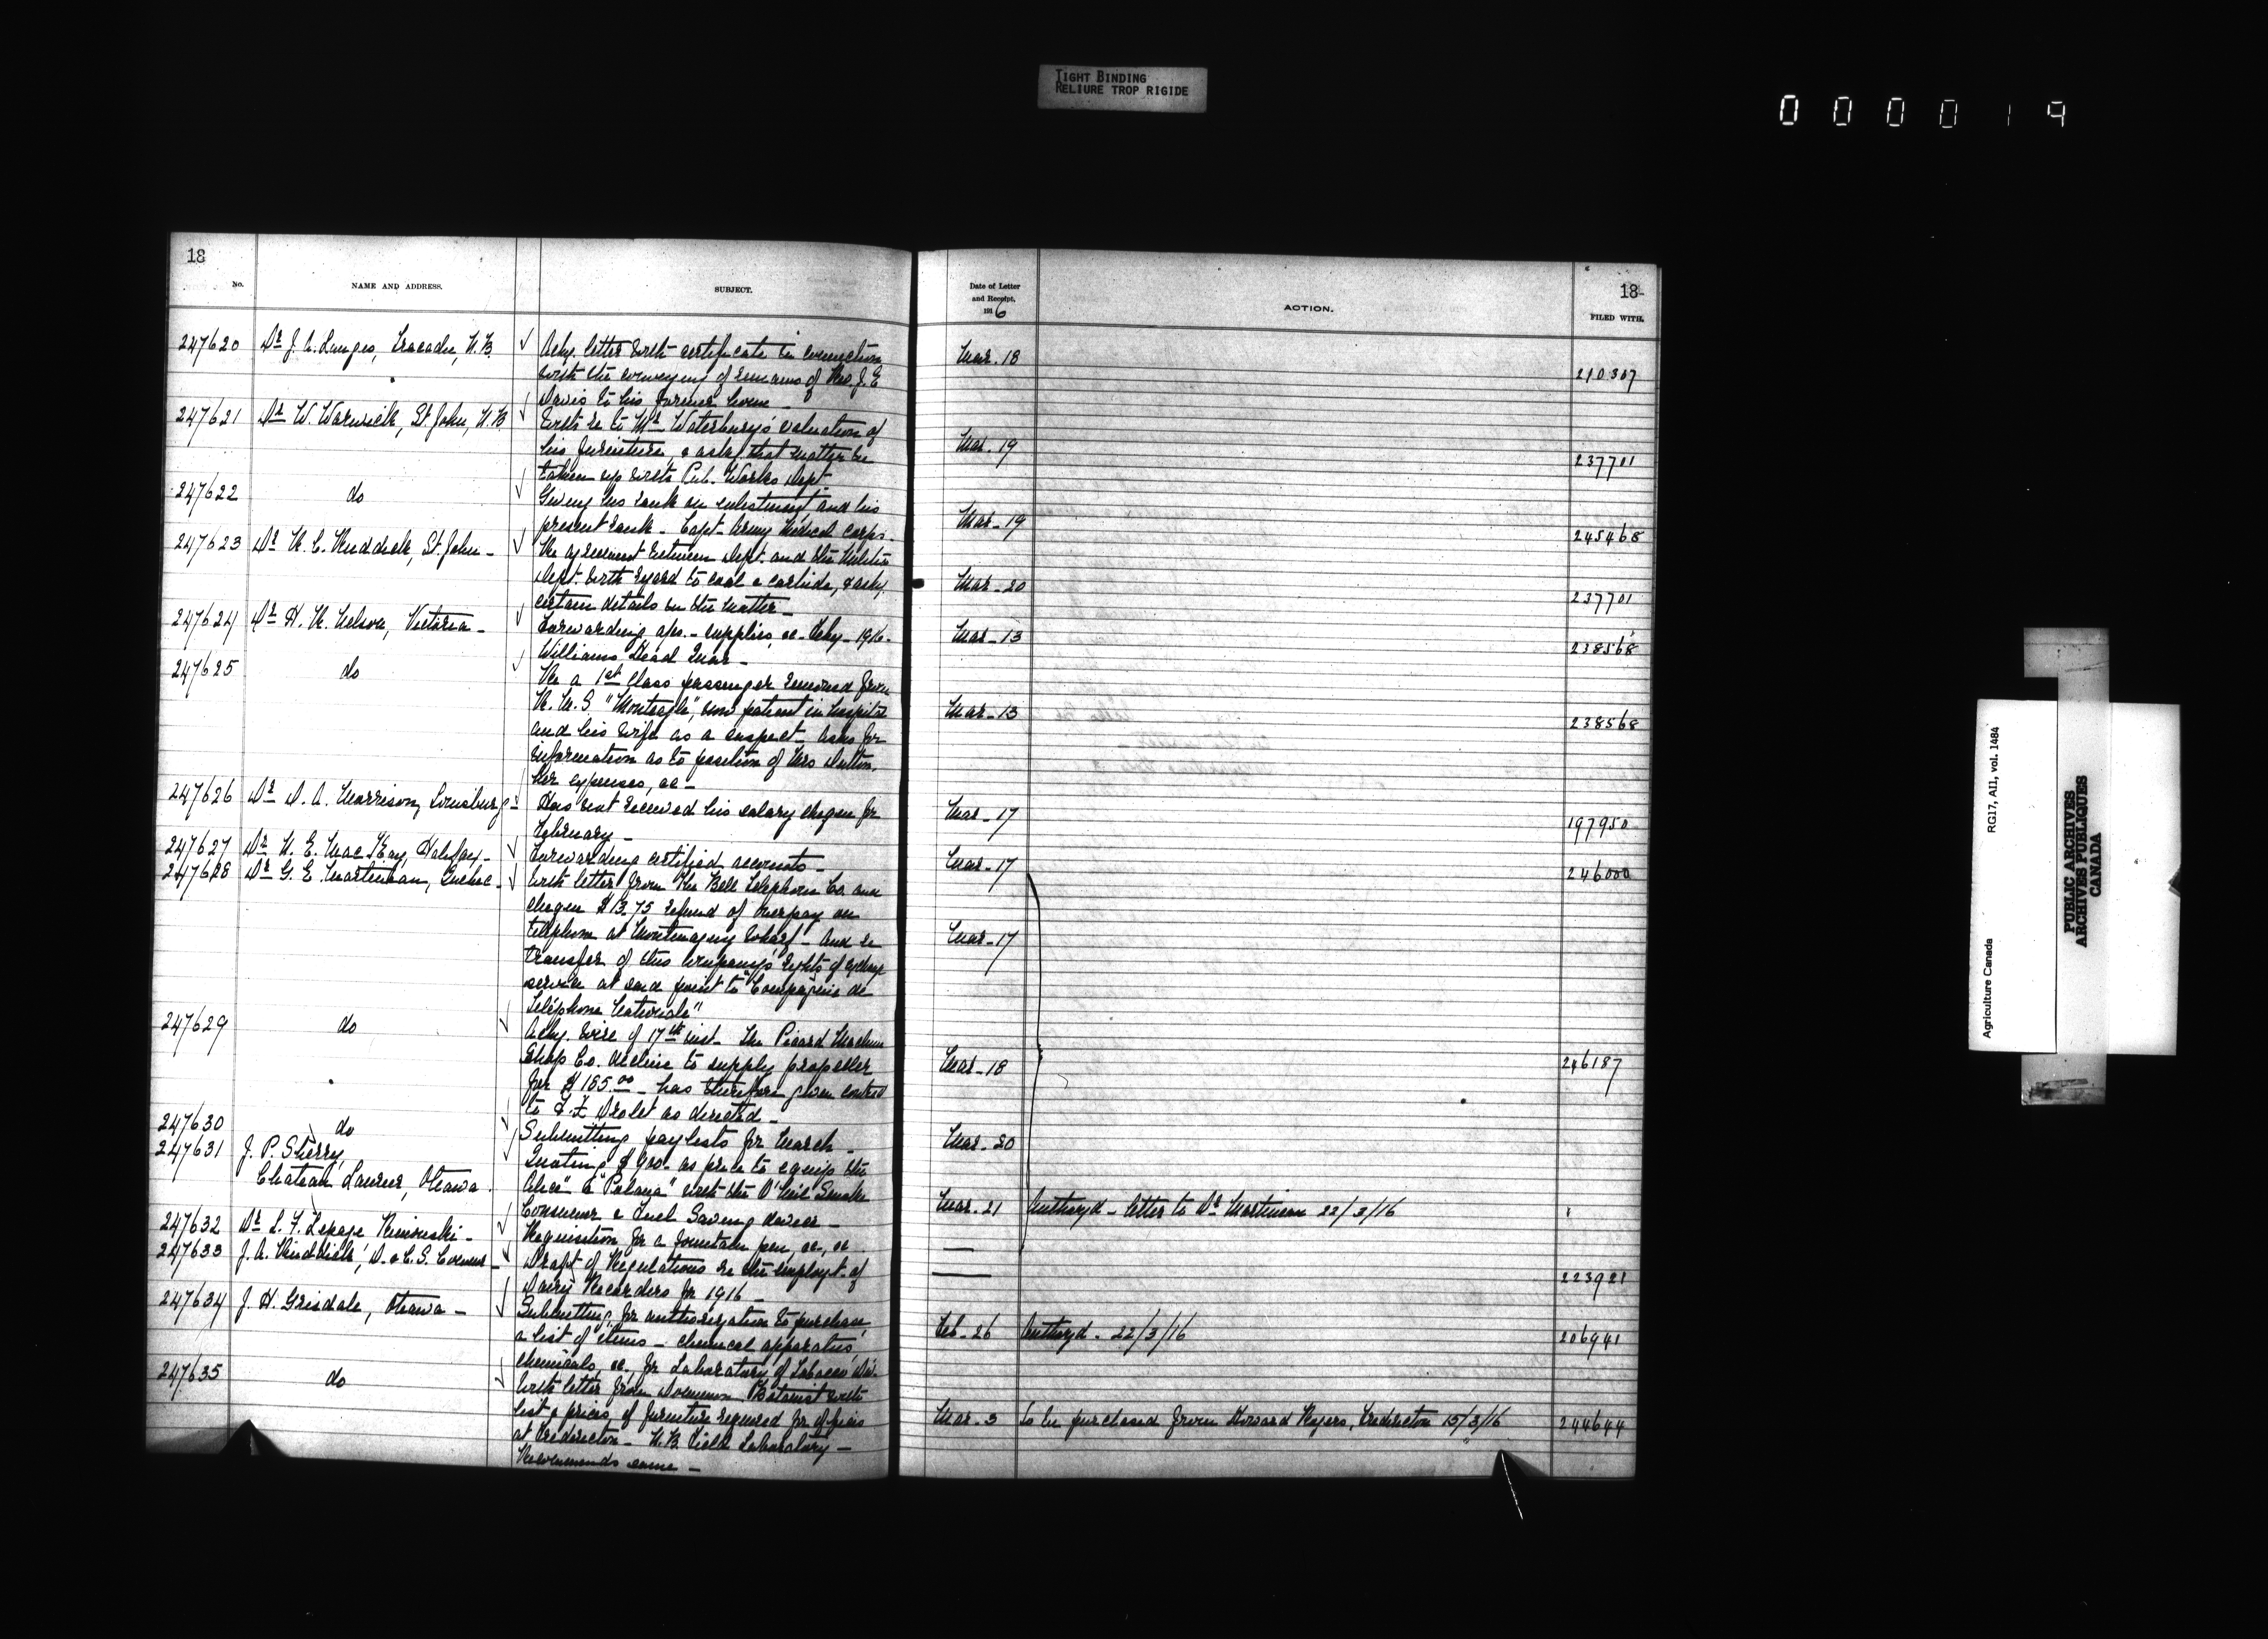 TIGHT BINDING
RELIURE TROP RIGIDE
000019
18
No.
NAME AND ADDRESS.
SUBJECT.
Date of Letter
and Receipt,
1916
ACTION.
18
FILED WITH.
247620 Dr J. A. Langis, Tracadie, N.B. ✓ Ackg. letter with certificate in connection
with the conveying of remains of Rev. J. E.
Davis to his former home —
Mar. 18
210307
247621 Dr W. Warwick, St John, N.B. ✓ With re to Mr Waterbury's valuation of
his furniture, & asks that matter be
taken up with Pub. Works Dept
Mar. 19
237701
247622 do ✓ Giving his rank on enlistment, and his
present rank — Capt. Army Medical Corps.
Mar. 19
245468
247623 Dr Ruddick, St. John — ✓ Re agreement between Dept. and the Militia
Dept. with regard to coal & carbide, & asks
certain details in the matter —
Mar. 20
237701
247624 Dr H. R. Nelson, Victoria — ✓ Forwarding aps. — supplies, &c — Feby — 1916.
Williams Head Quar —
Mar. 13
238568
247625 do ✓ Re a 1st Class passenger removed from
R. M. S. "Monteagle", now patient in hospital
and his wife as a suspect — Asks for
information as to position of Mrs Dutton,
her expenses, &c —
Mar. 13
238568
247626 Dr D. A. Morrison, Louisburg — ✓ Has not received his salary cheque for
February —
Mar. 17
197950
247627 Dr N. E. MacKay, Halifax — ✓ Forwarding certified accounts —
Mar. 17
246000
247628 Dr G. E. Martineau, Quebec — ✓ With letter from the Bell Telephone Co. and
cheque $13.75 refund of overpay on
telephone at Montmagny Wharf — And re
transfer of this company's rights of exchange
service at said point to "Compagnie de
Téléphone Nationale"
Mar. 17
247629 do ✓ Ackg. wire of 17th inst. The Picard Machine
Shop Co. decline to supply propeller
for $165.00 — has therefore given contract
to F. X. Drolet as directed —
Mar. 18
246187
247630 do ✓ Submitting paylists for March —
Mar. 20
247631 J. P. Sherry,
Chateau Laurier, Ottawa. ✓ Quoting $900 — as price to equip the
"Alice" & "Polana" with the O'Neil Smoke
Consumer & Fuel Saving device —
Mar. 21 Authozd — letter to Dr Martineau 22/3/16
247632 Dr L. F. Lepage Rimouski — ✓ Requisition for a fountain pen, &c, &c
—
247633 J. A. Ruddick, D. & C. S. Commr — ✓ Draft of Regulations re the employt. of
Dairy Recorders for 1916 —
—
223921
247634 J. H. Grisdale, Ottawa — ✓ Submitting for authorization to purchase,
a list of items — chemical apparatus,
chemicals, &c. for Laboratory of Tobacco Div.
Feb. 26 Authozd. 22/3/16
206941
247635 do ✓ With letter from Dominion Botanist with
list & prices of furniture required for offices
at Fredericton — N.B. Field Laboratory —
Recommends same —
Mar. 3 To be purchased from Howard Rogers, Fredericton 15/3/16
244644
Agriculture Canada RG17, AII, vol. 1484
PUBLIC ARCHIVES
ARCHIVES PUBLIQUES
CANADA